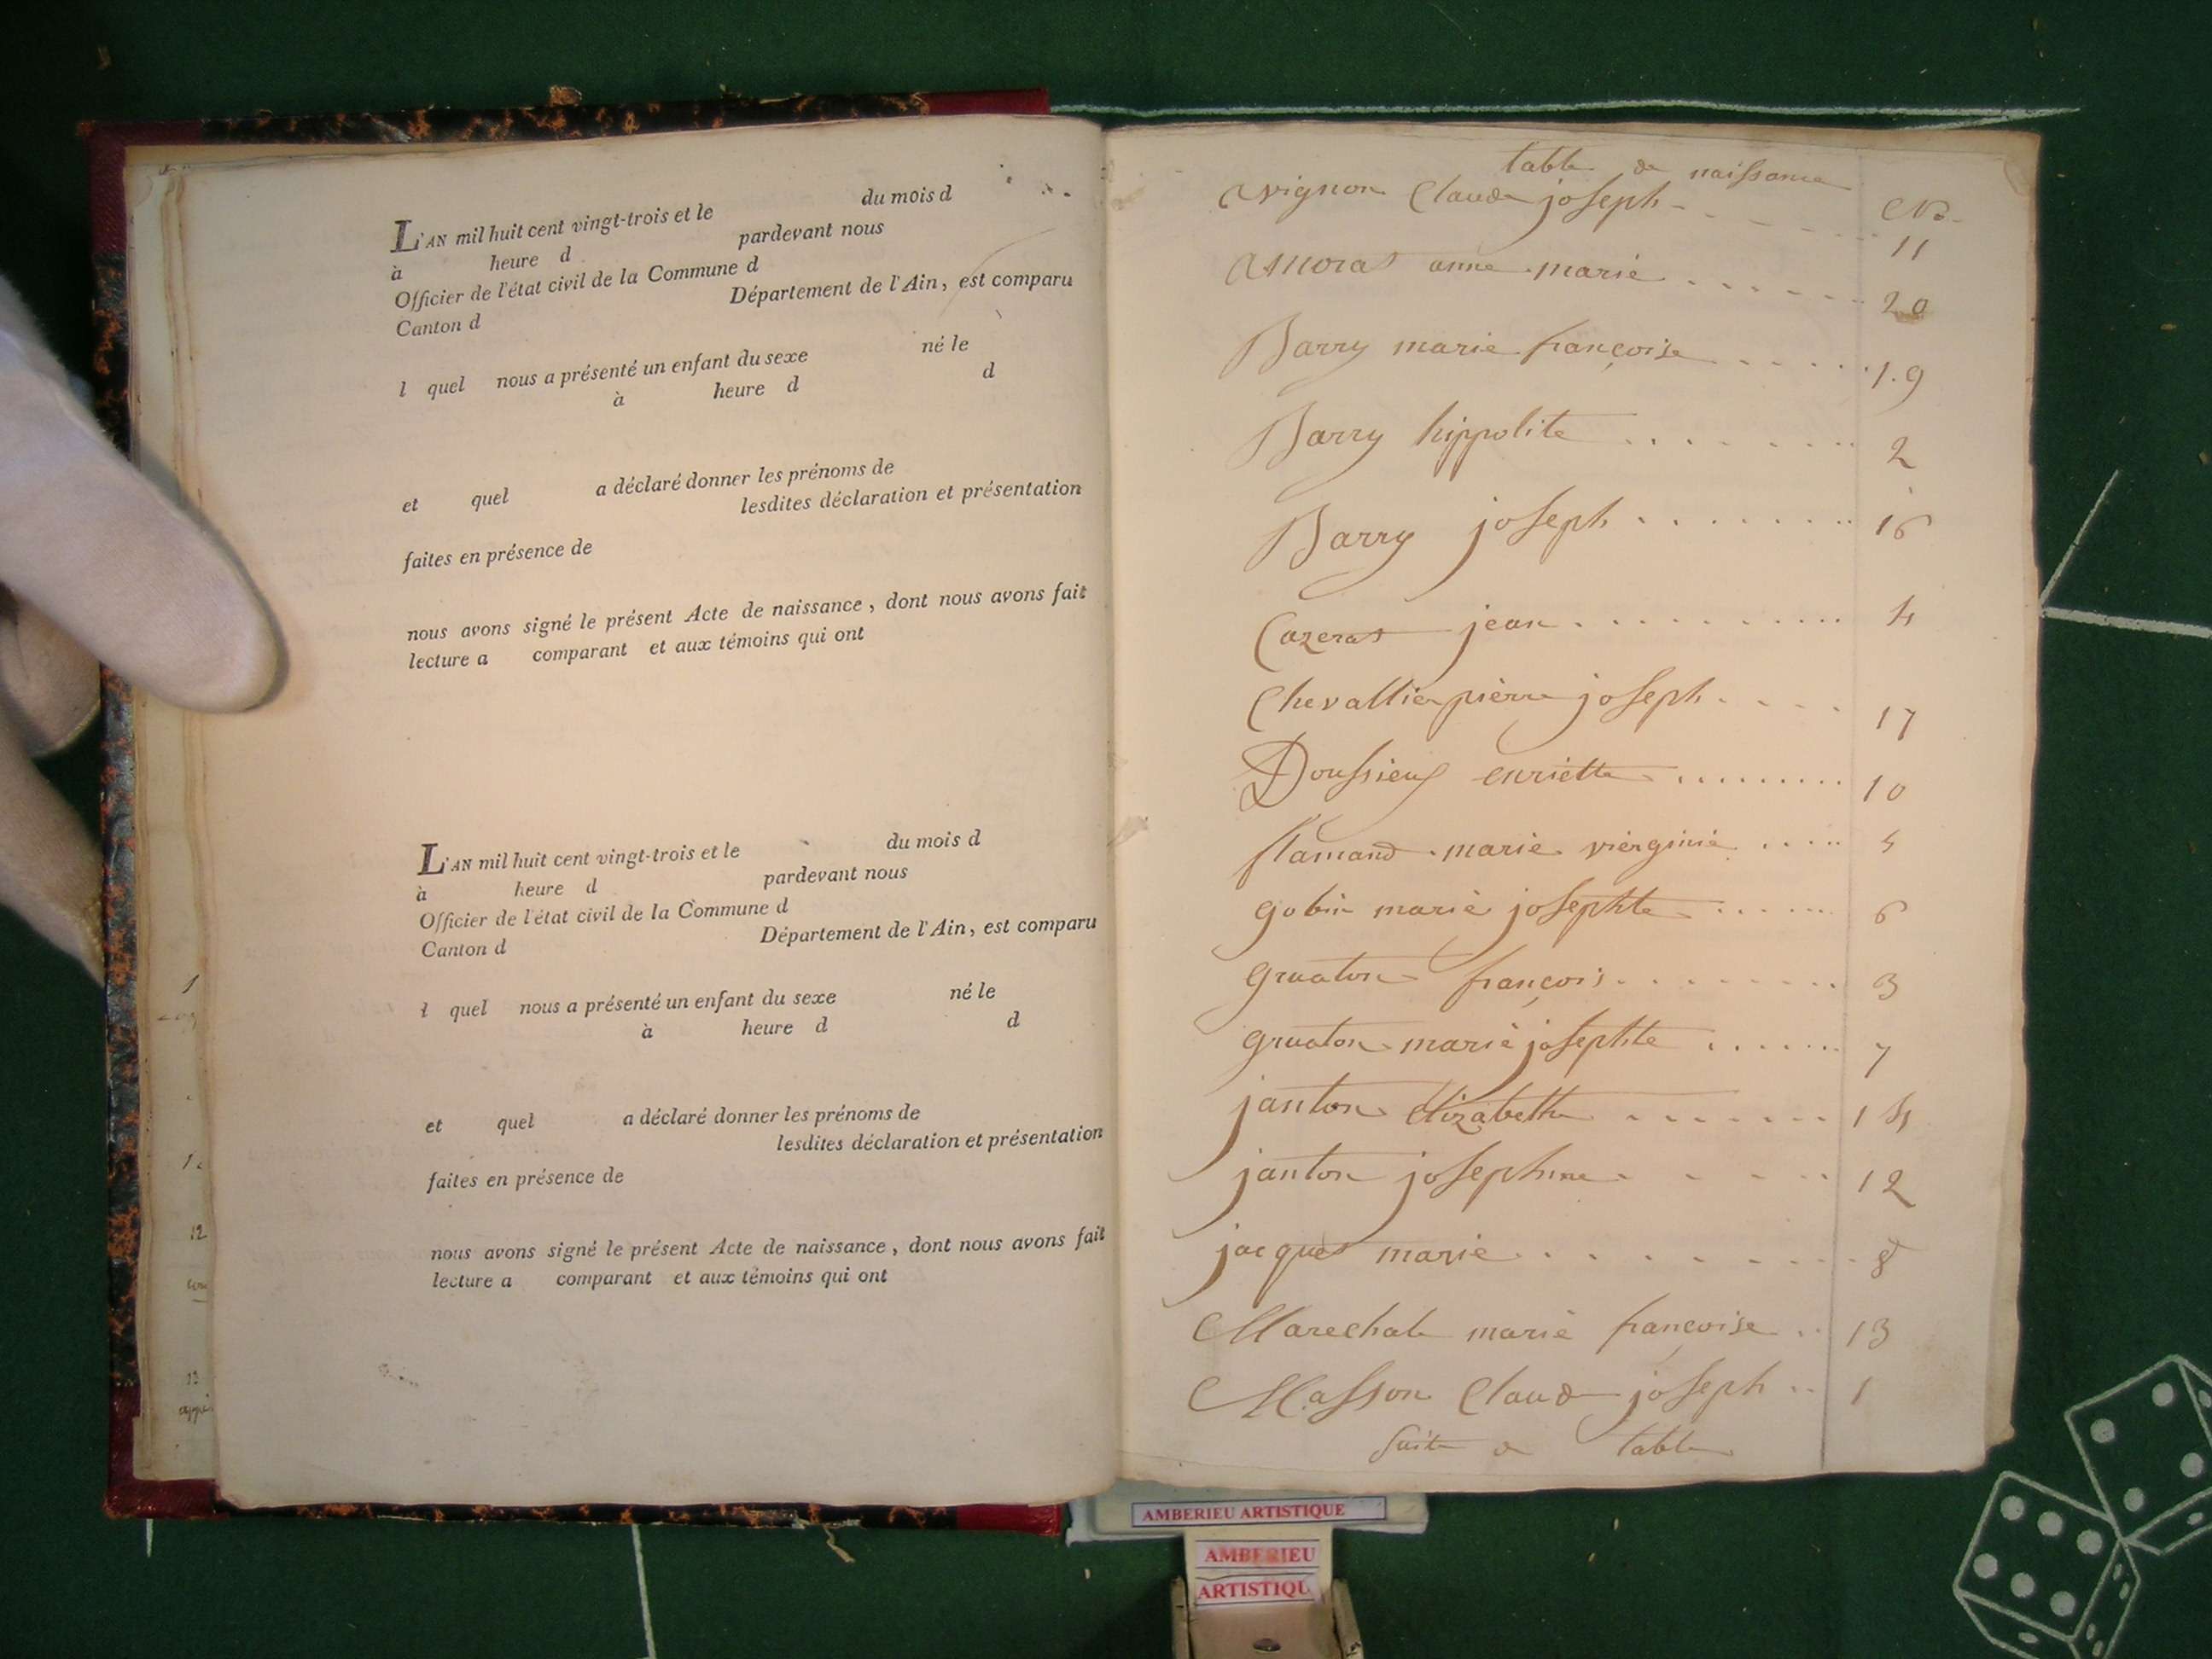 L'AN mil huit cent vingt-trois et le du mois d
à heure d pardevant nous
Officier de l'état civil de la Commune d
Canton d Département de l'Ain, est comparu
l quel nous a présenté un enfant du sexe né le
à heure d d
et quel a déclaré donner les prénoms de
lesdites déclaration et présentation
faites en présence de
nous avons signé le présent Acte de naissance, dont nous avons fait
lecture a comparant et aux témoins qui ont
L'AN mil huit cent vingt-trois et le du mois d
à heure d pardevant nous
Officier de l'état civil de la Commune d
Canton d Département de l'Ain, est comparu
l quel nous a présenté un enfant du sexe né le
à heure d d
et quel a déclaré donner les prénoms de
lesdites déclaration et présentation
faites en présence de
nous avons signé le présent Acte de naissance, dont nous avons fait
lecture a comparant et aux témoins qui ont
12
table de naissance
No.
avignon Claude joseph 11
amoras anne marie 20
Barry marie françoise 19
Barry hippolite 2
Barry joseph 16
Cazeras jean 4
Chevallier pierre joseph 17
Doussieux enriette 10
flamand marie vierginie 5
gobin marie josephte 6
gruaton françois 3
gruaton marie josephte 7
janton elizabethe 14
janton josephine 12
jacques marie 8
Marechale marie françoise 13
Masson Claude joseph 1
suite de table
AMBERIEU ARTISTIQUE
AMBERIEU
ARTISTIQU